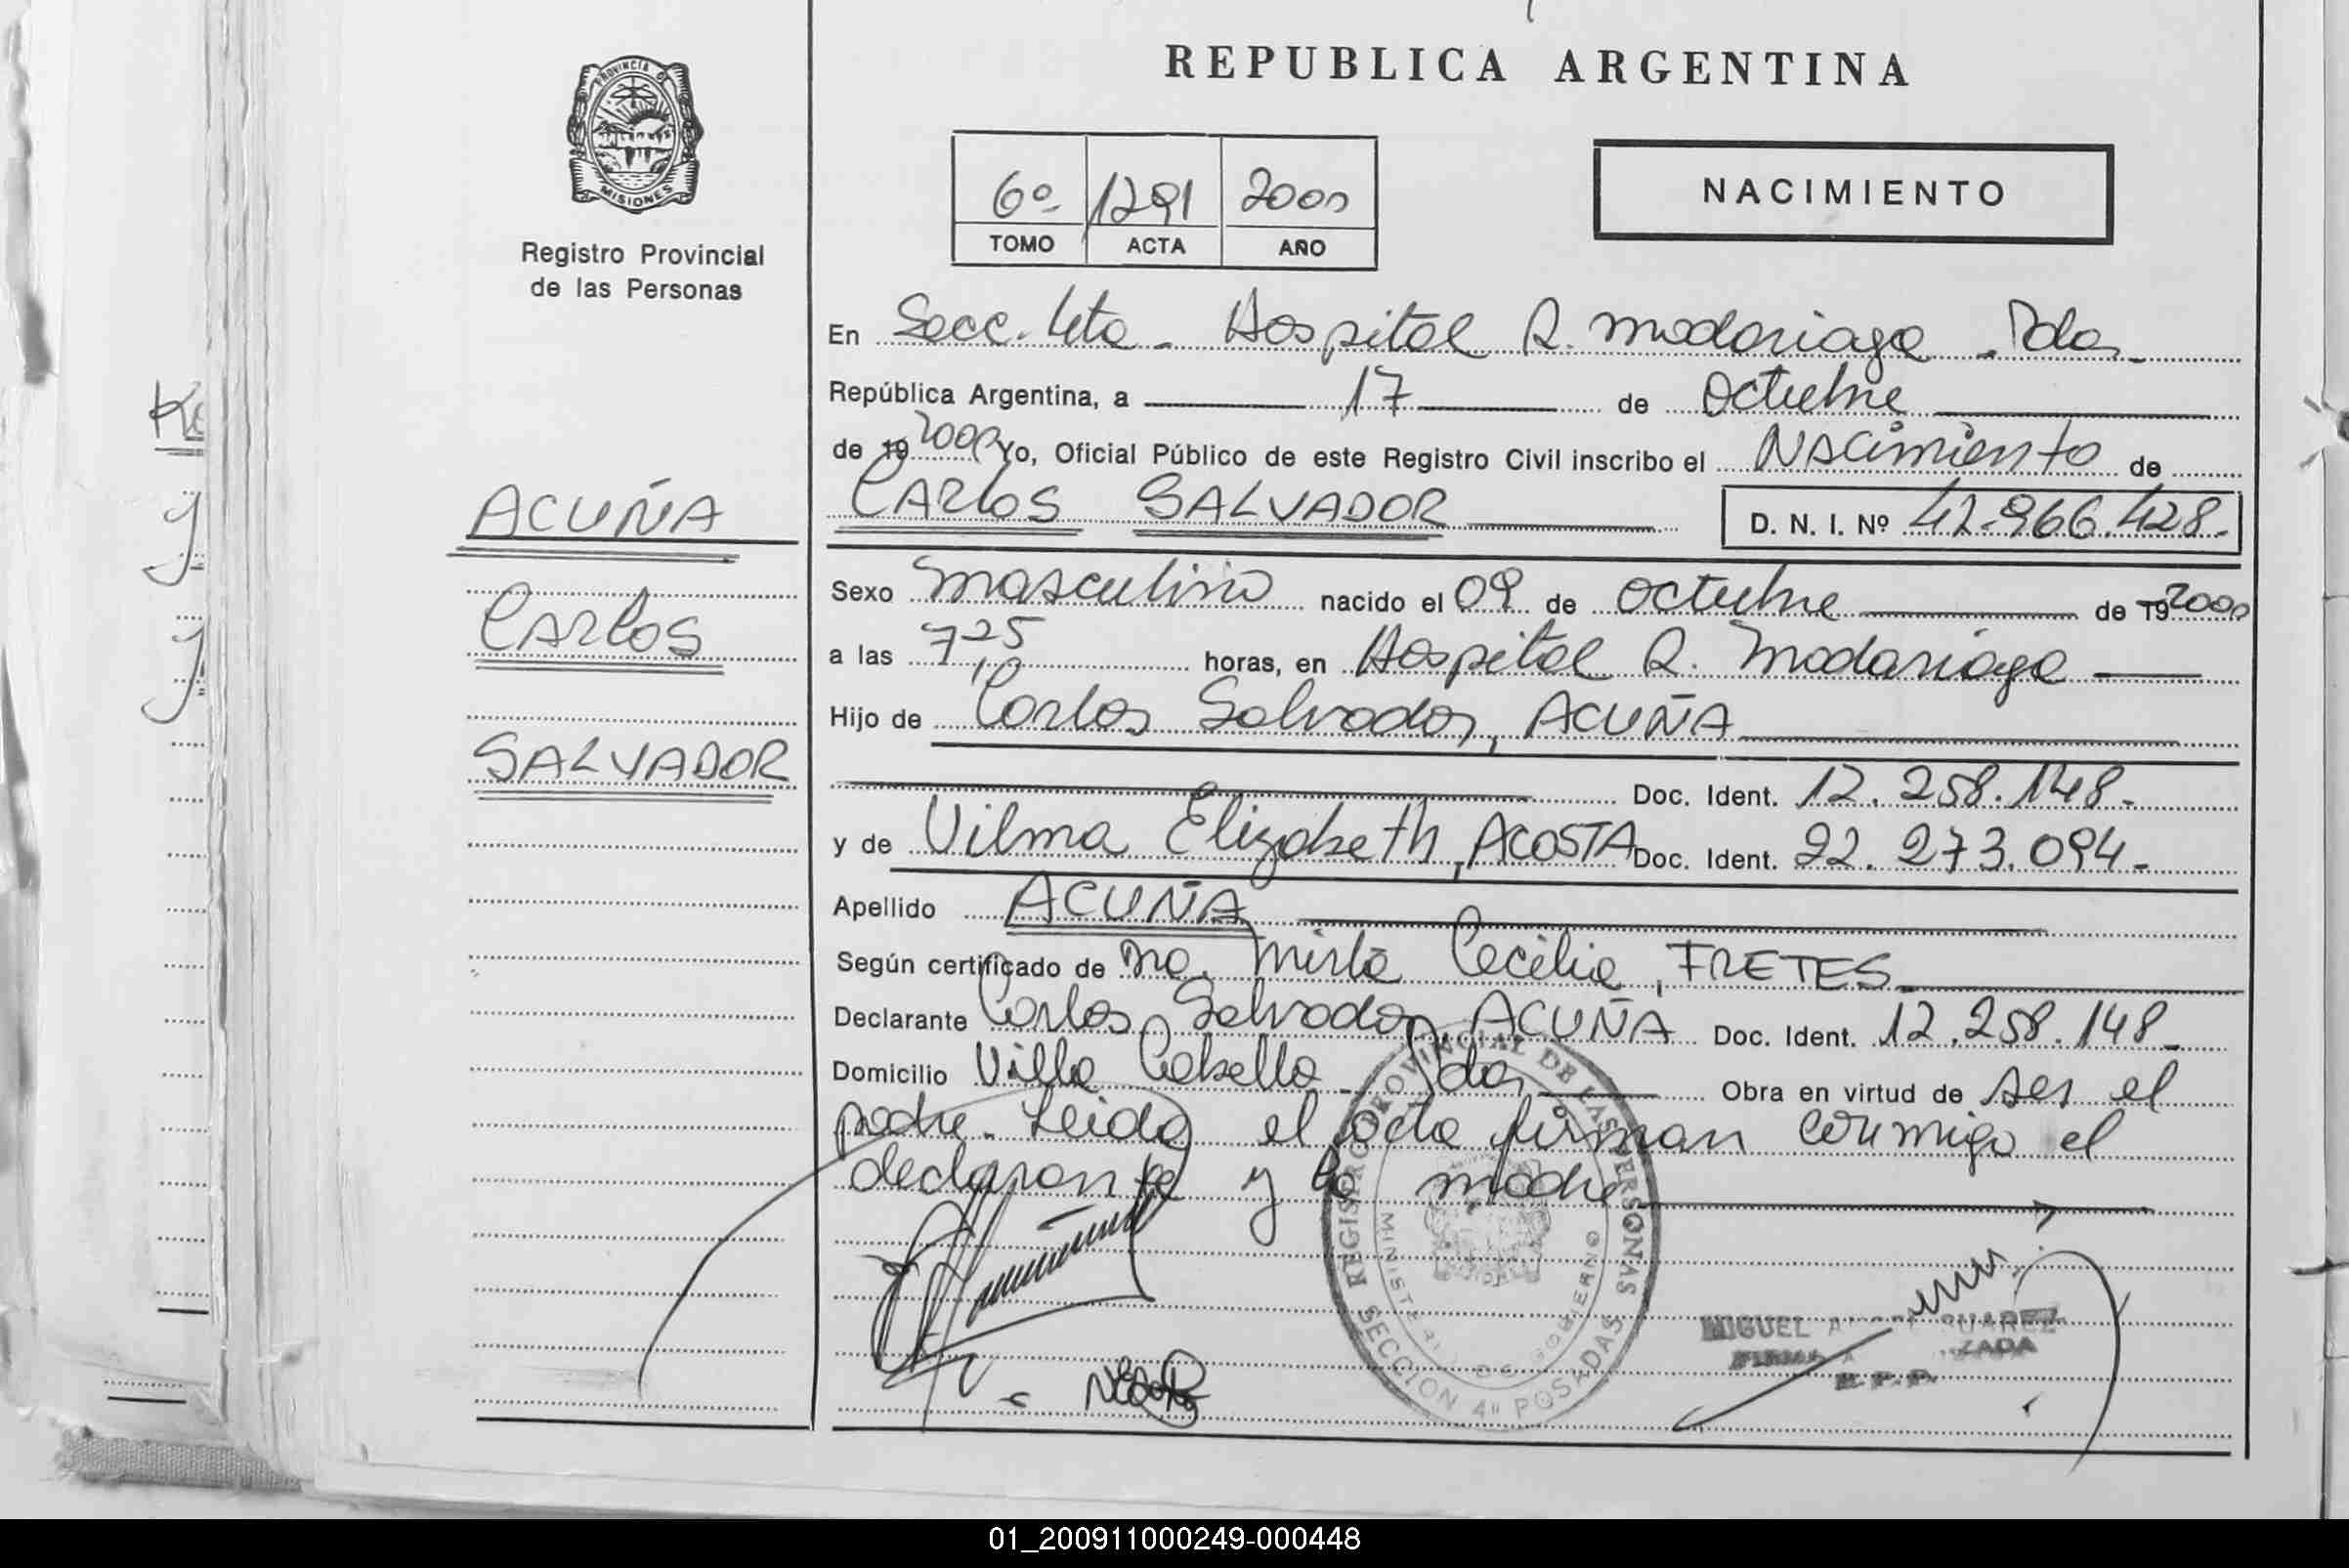 REPUBLICA ARGENTINA
PROVINCIA DE
MISIONES
Registro Provincial
de las Personas
6º 1291 2000
TOMO ACTA AÑO
NACIMIENTO
En Secc. 4ta - Hospital R. Madariaga - Pdas -
República Argentina, a 17 de Octubre
de 19 2000 Yo, Oficial Público de este Registro Civil inscribo el Nacimiento de
CARLOS SALVADOR D. N. I. Nº 42.966.428.-
ACUÑA
CARLOS
SALVADOR
Sexo masculino nacido el 09 de octubre de 19 2000
a las 7,25 horas, en Hospital R. Madariaga
Hijo de Carlos Salvador, ACUÑA
Doc. Ident. 12.258.148.-
y de Vilma Elizabeth, ACOSTA Doc. Ident. 22.273.094.-
Apellido ACUÑA
Según certificado de Mirta Cecilia, FRETES
Declarante Carlos Salvador ACUÑA Doc. Ident. 12.258.148-
Domicilio Villa Cabello - Pdas Obra en virtud de ser el
padre. Leida el acta firman conmigo el
declarante y la madre
REGISTRO PROVINCIAL DE LAS PERSONAS
MINISTERIO DE GOBIERNO
SECCION 4º POSADAS
MIGUEL SUAREZ
FIRMA
R.P.P.
01_200911000249-000448